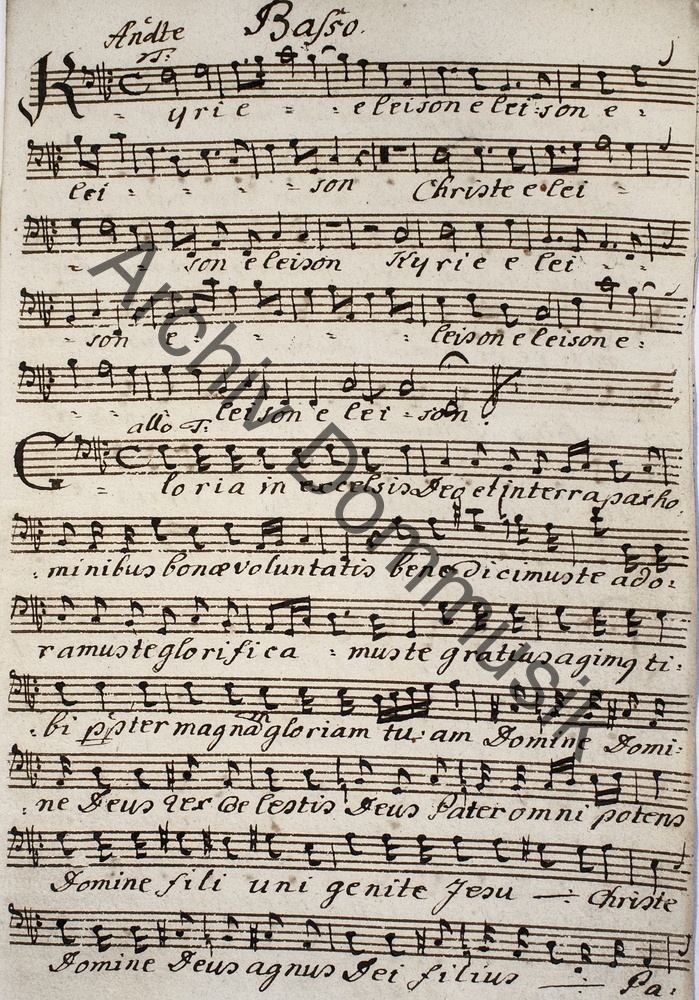 Andte Basso.
T:
Kyrie - - eleison e lei: son e :
lei - - - - son Christe e lei -
- - - son eleison Kyrie e lei - -
- son e - - - - leison e leison e :
- - leison e lei - son.
allo T:
Gloria in excelsis Deo et in terra pax ho
: minibus bonæ voluntatis benedicimuste ado:
ramus te glorifica - muste gratias agimq ti:
: bi ppter magnā gloriam tu: am Domine Domi:
: ne Deus rex Cælestis Deus Pater omni potens
Domine fili uni genite Jesu — : Christe
Domine Deus agnus Dei filius — : Pa:
Archiv Dommusik